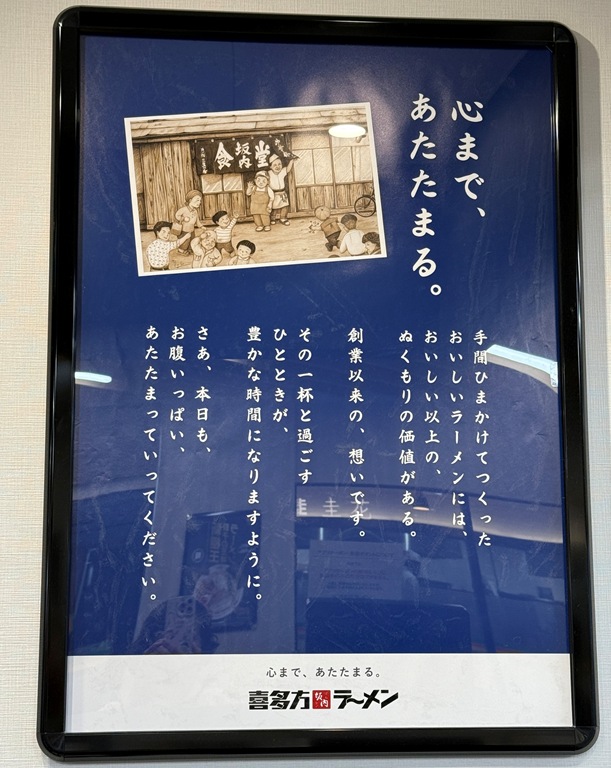 心まで、
あたたまる。
坂内
食堂
手間ひまかけてつくった
おいしいラーメンには、
おいしい以上の、
ぬくもりの価値がある。
創業以来の、想いです。
その一杯と過ごす
ひとときが、
豊かな時間になりますように。
さあ、本日も、
お腹いっぱい、
あたたまっていってください。
心まで、あたたまる。
喜多方坂内ラーメン